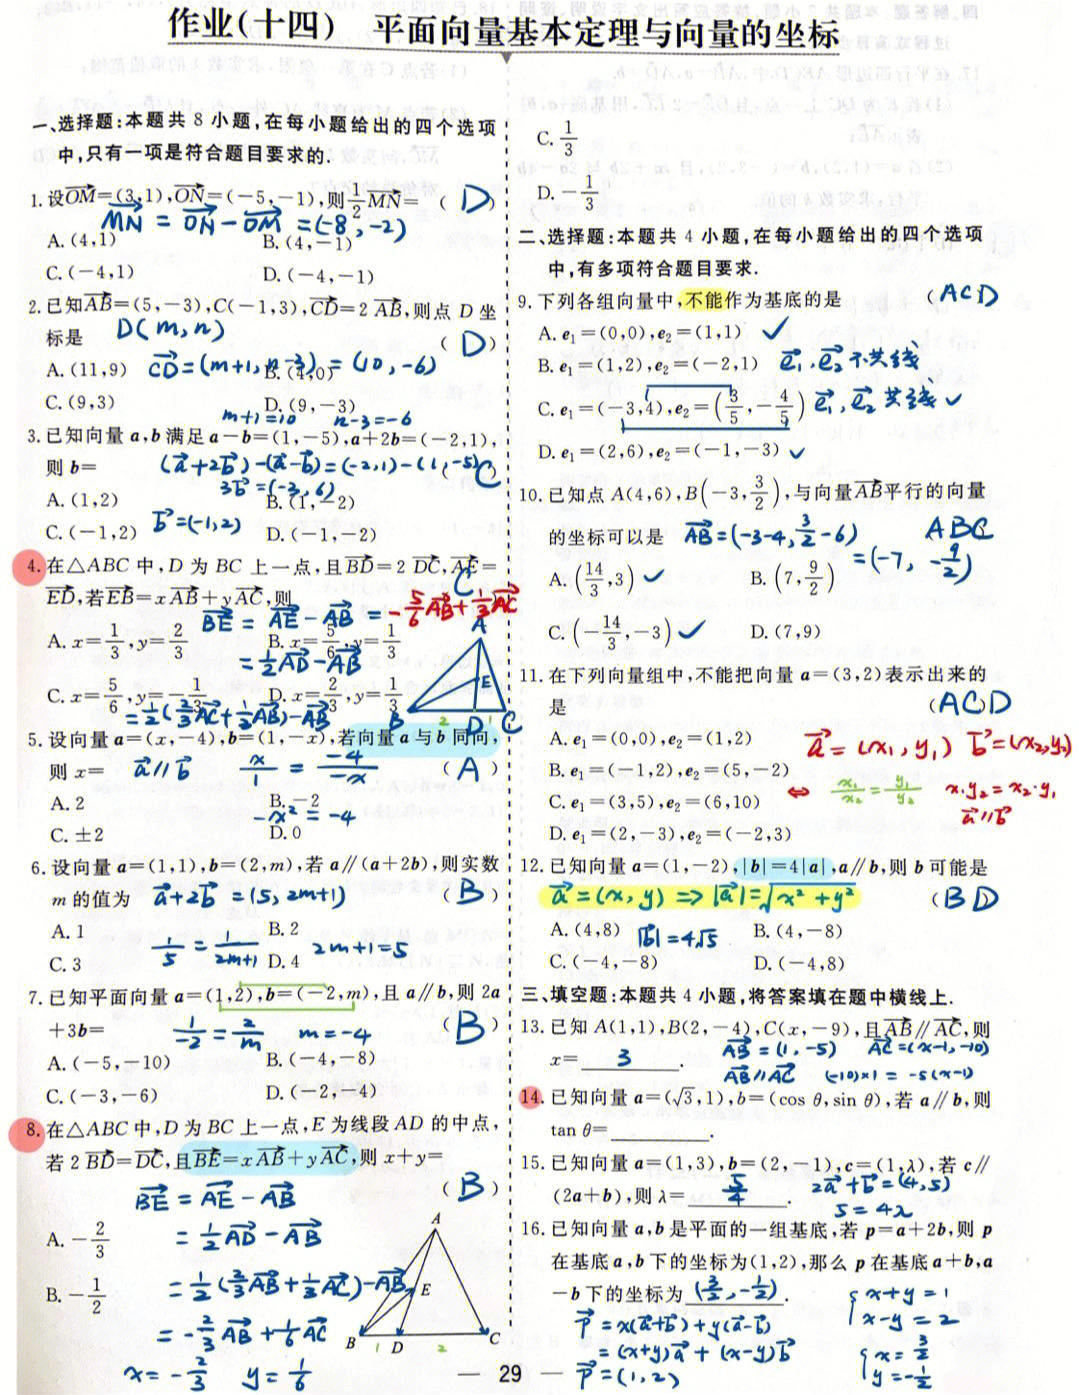 作业(十四)　平面向量基本定理与向量的坐标
一、选择题:本题共 8 小题,在每小题给出的四个选项
中,只有一项是符合题目要求的.
1. 设OM=(3,1),ON=(-5,-1),则1/2 MN= ( D )
MN = ON - OM = (-8, -2)
A. (4,1) B. (4,-1)
C. (-4,1) D. (-4,-1)
2. 已知AB=(5,-3),C(-1,3),CD=2 AB,则点 D 坐
标是 D(m,n) ( D )
A. (11,9) B. (4,0)
CD=(m+1, n-3) = (10, -6)
C. (9,3) D. (9,-3)
m+1=10 n-3=-6
3. 已知向量 a,b 满足 a-b=(1,-5),a+2b=(-2,1),
则 b= (a+2b)-(a-b)=(-2,1)-(1,-5) C
3b=(-3,6)
A. (1,2) B. (1,-2)
C. (-1,2) D. (-1,-2)
b=(-1,2)
4. 在△ABC 中,D 为 BC 上一点,且BD=2 DC,AE=
ED,若EB=xAB+yAC,则 C
BE = AE - AB = -5/6 AB + 1/3 AC
A. x=1/3,y=2/3 B. x=5/6,y=1/3
= 1/2 AD - AB
C. x=5/6,y=-1/3 D. x=2/3,y=1/3
= 1/2 (2/3 AC + 1/3 AB) - AB
A
E
B 2 D 1 C
5. 设向量 a=(x,-4),b=(1,-x),若向量 a 与 b 同向,
则 x= a∥b x/1 = -4/-x ( A )
A. 2 B. -2
-x² = -4
C. ±2 D. 0
6. 设向量 a=(1,1),b=(2,m),若 a∥(a+2b),则实数
m 的值为 a+2b = (5, 2m+1) ( B )
A. 1 B. 2
1/5 = 1/2m+1 2m+1=5
C. 3 D. 4
7. 已知平面向量 a=(1,2),b=(-2,m),且 a∥b,则 2a
+3b= 1/-2 = 2/m m=-4 ( B )
A. (-5,-10) B. (-4,-8)
C. (-3,-6) D. (-2,-4)
8. 在△ABC 中,D 为 BC 上一点,E 为线段 AD 的中点,
若 2 BD=DC,且BE=xAB+yAC,则 x+y=
BE = AE - AB ( B )
A. -2/3
= 1/2 AD - AB
B. -1/2
= 1/2 (2/3 AB + 1/3 AC) - AB
= -2/3 AB + 1/6 AC
x=-2/3 y=1/6
A
E
B 1 D 2 C
C. 1/3
D. -1/3
二、选择题:本题共 4 小题,在每小题给出的四个选项
中,有多项符合题目要求.
9. 下列各组向量中,不能作为基底的是 ( ACD )
A. e₁=(0,0),e₂=(1,1) ✓
B. e₁=(1,2),e₂=(-2,1) e₁,e₂不共线
C. e₁=(-3,4),e₂=(3/5,-4/5) e₁,e₂共线 ✓
D. e₁=(2,6),e₂=(-1,-3) ✓
10. 已知点 A(4,6),B(-3,3/2),与向量AB平行的向量
的坐标可以是 AB=(-3-4, 3/2-6) ABC
=(-7, -9/2)
A. (14/3,3) ✓ B. (7,9/2)
C. (-14/3,-3) ✓ D. (7,9)
11. 在下列向量组中,不能把向量 a=(3,2)表示出来的
是 ( ACD
A. e₁=(0,0),e₂=(1,2) a=(x₁,y₁) b=(x₂,y₂)
B. e₁=(-1,2),e₂=(5,-2)
⇔ x₁/x₂=y₁/y₂ x₁y₂=x₂·y₁
C. e₁=(3,5),e₂=(6,10)
a∥b
D. e₁=(2,-3),e₂=(-2,3)
12. 已知向量 a=(1,-2),|b|=4|a|,a∥b,则 b 可能是
a=(x,y) => |a|=√x²+y² ( BD
A. (4,8) |b|=4√5 B. (4,-8)
C. (-4,-8) D. (-4,8)
三、填空题:本题共 4 小题,将答案填在题中横线上.
13. 已知 A(1,1),B(2,-4),C(x,-9),且AB∥AC,则
x= 3 . AB=(1,-5) AC=(x-1,-10)
AB∥AC (-10)×1 = -5(x-1)
14. 已知向量 a=(√3,1),b=(cos θ,sin θ),若 a∥b,则
tan θ=________.
15. 已知向量 a=(1,3),b=(2,-1),c=(1,λ),若 c∥
(2a+b),则 λ= 5/4 . 2a+b=(4,5)
5=4λ
16. 已知向量 a,b 是平面的一组基底,若 p=a+2b,则 p
在基底 a,b 下的坐标为(1,2),那么 p 在基底 a+b,a
-b 下的坐标为 (3/2,-1/2) . { x+y=1
x-y=2
p=x(a+b)+y(a-b)
=(x+y)a+(x-y)b { x=3/2
p=(1,2) y=-1/2
— 29 —